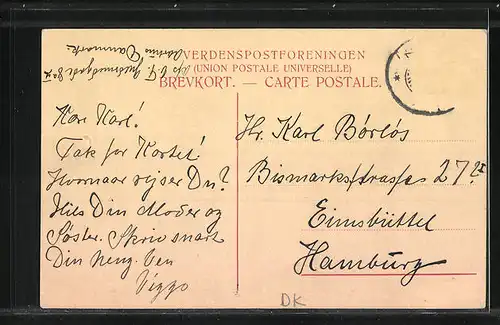 VERDENSPOSTFORENINGEN
(UNION POSTALE UNIVERSELLE)
BREVKORT. — CARTE POSTALE.
Danmark
Kære Karl!
Tak for Kortet!
Hvornaar rejser Du?
Hils Din Moder og
Søster. Skriv snart
Din heng. Ven
Viggo
Hr. Karl Börlös
Bismarkstrasse 27
Eimsbüttel
Hamburg
DK